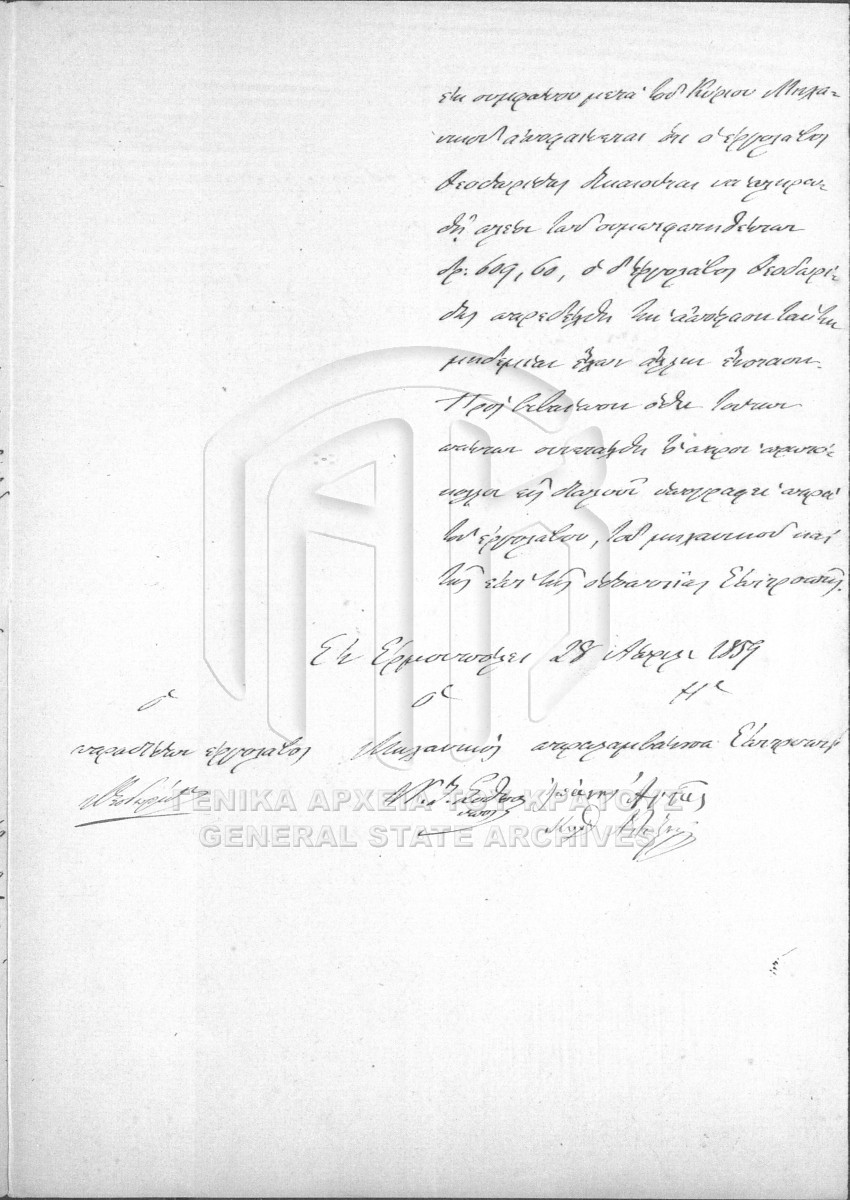 ἐκ συμφώνου μετὰ τοῦ Κυρίου Μηχα-
νικοῦ ἀποφαίνεται ὅτι ὁ ἐργολάβος
Θεοδωρίδης δικαιοῦται νὰ πληρω-
θῇ πλέον τοῦ συμφωνηθέντων
δρ: 609, 60, ὁ δ' ἐργολάβος Θεοδωρί-
δης παρεδέχθη τὴν ἀπόφασιν ταύτην
μηδεμίαν ἔχων ἄλλην ἔνστασιν.
Πρὸς βεβαίωσιν ὅθεν τούτων
συνετάχθη τὸ παρὸν πρωτό-
κολλον εἰς διπλοῦν ὑπογραφὲν παρὰ
τοῦ ἐργολάβου, τοῦ μηχανικοῦ καὶ
τῆς ἐπὶ τῆς Ἐπιτροπῆς.
Ἐν Ἑρμουπόλει 28 Ἀπριλ 1859
ὁ ὁ Ἡ
ἐργολάβος Μηχανικός παραλαμβάνουσα Ἐπιτροπή
ΓΕΝΙΚΑ ΑΡΧΕΙΑ ΤΟΥ ΚΡΑΤΟΥΣ
GENERAL STATE ARCHIVES